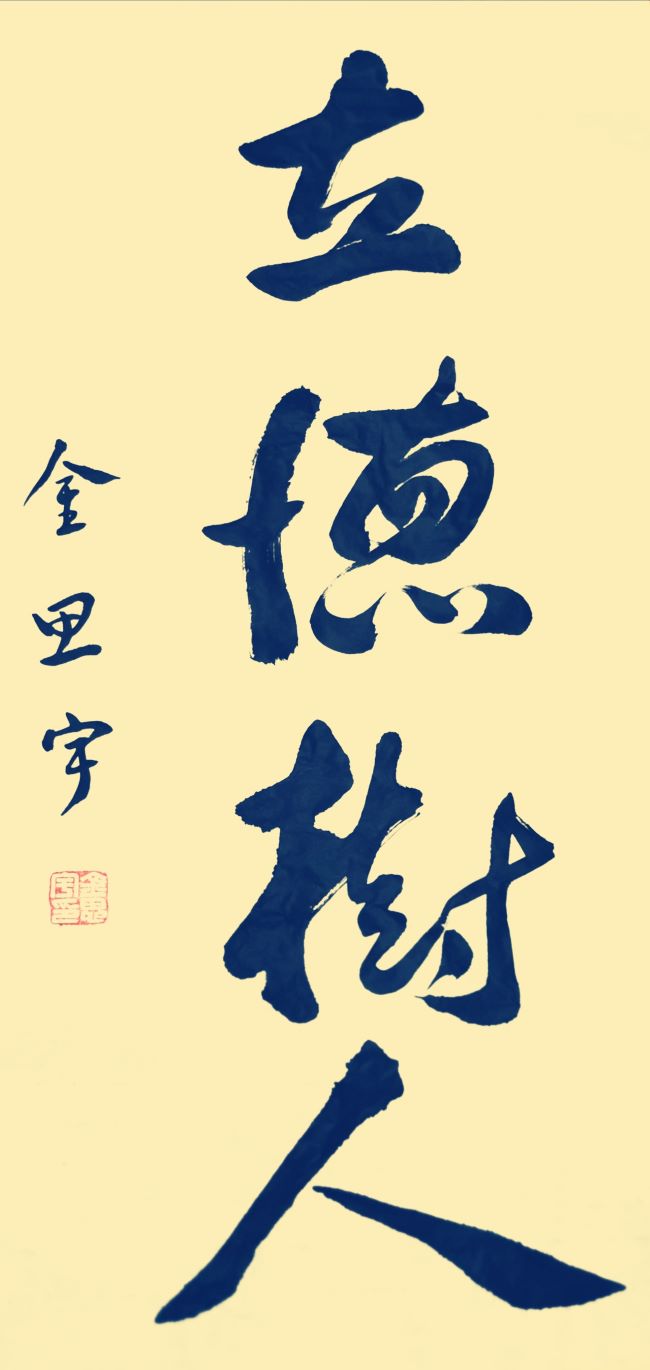 立德樹人
金思宇